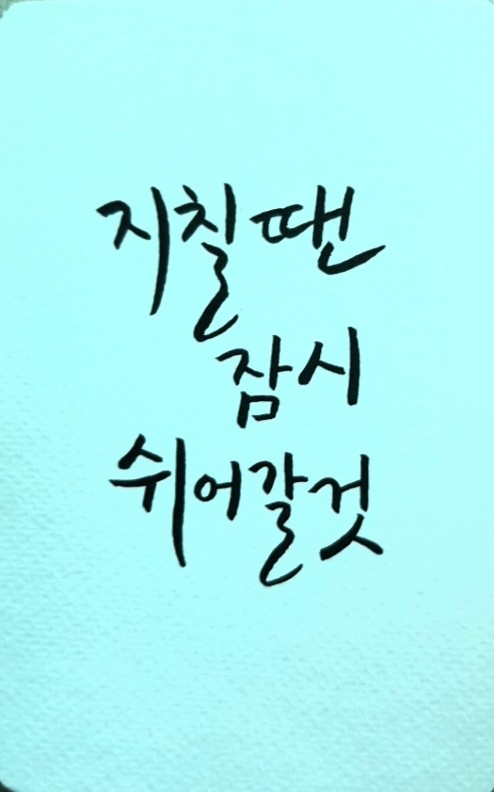 지칠 땐
잠시
쉬어갈 것